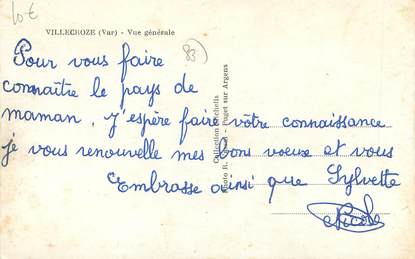 10 €
VILLECROZE (Var) - Vue générale
83
Pour vous faire
connaître le pays de
maman, j'espère faire vôtre connaissance
je vous renouvelle mes bons voeux et vous
Embrasse ainsi que Sylvette
Nicole
Collection
Photo R. - Puget sur Argens